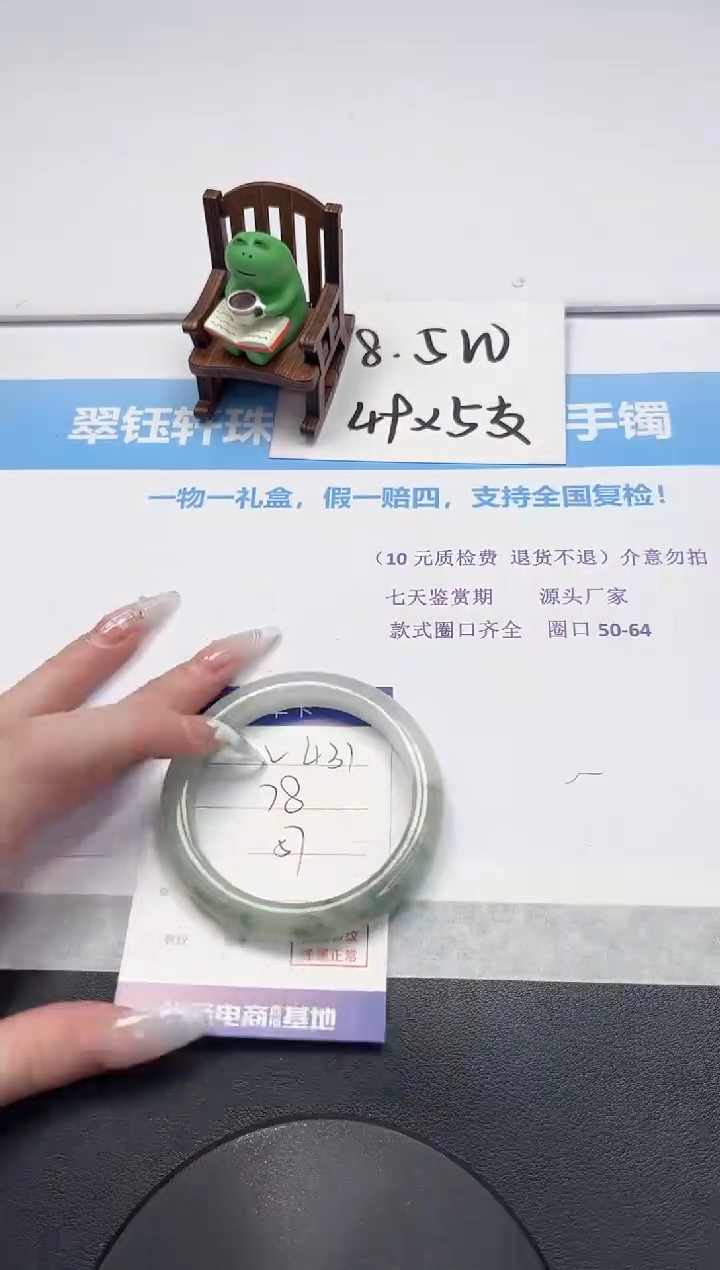 8.5W
4P×5支
翠钰轩珠 手镯
一物一礼盒，假一赔四，支持全国复检！
（10 元质检费 退货不退）介意勿拍
七天鉴赏期 源头厂家
款式圈口齐全 圈口 50-64
431
78
57
正常
电商 基地